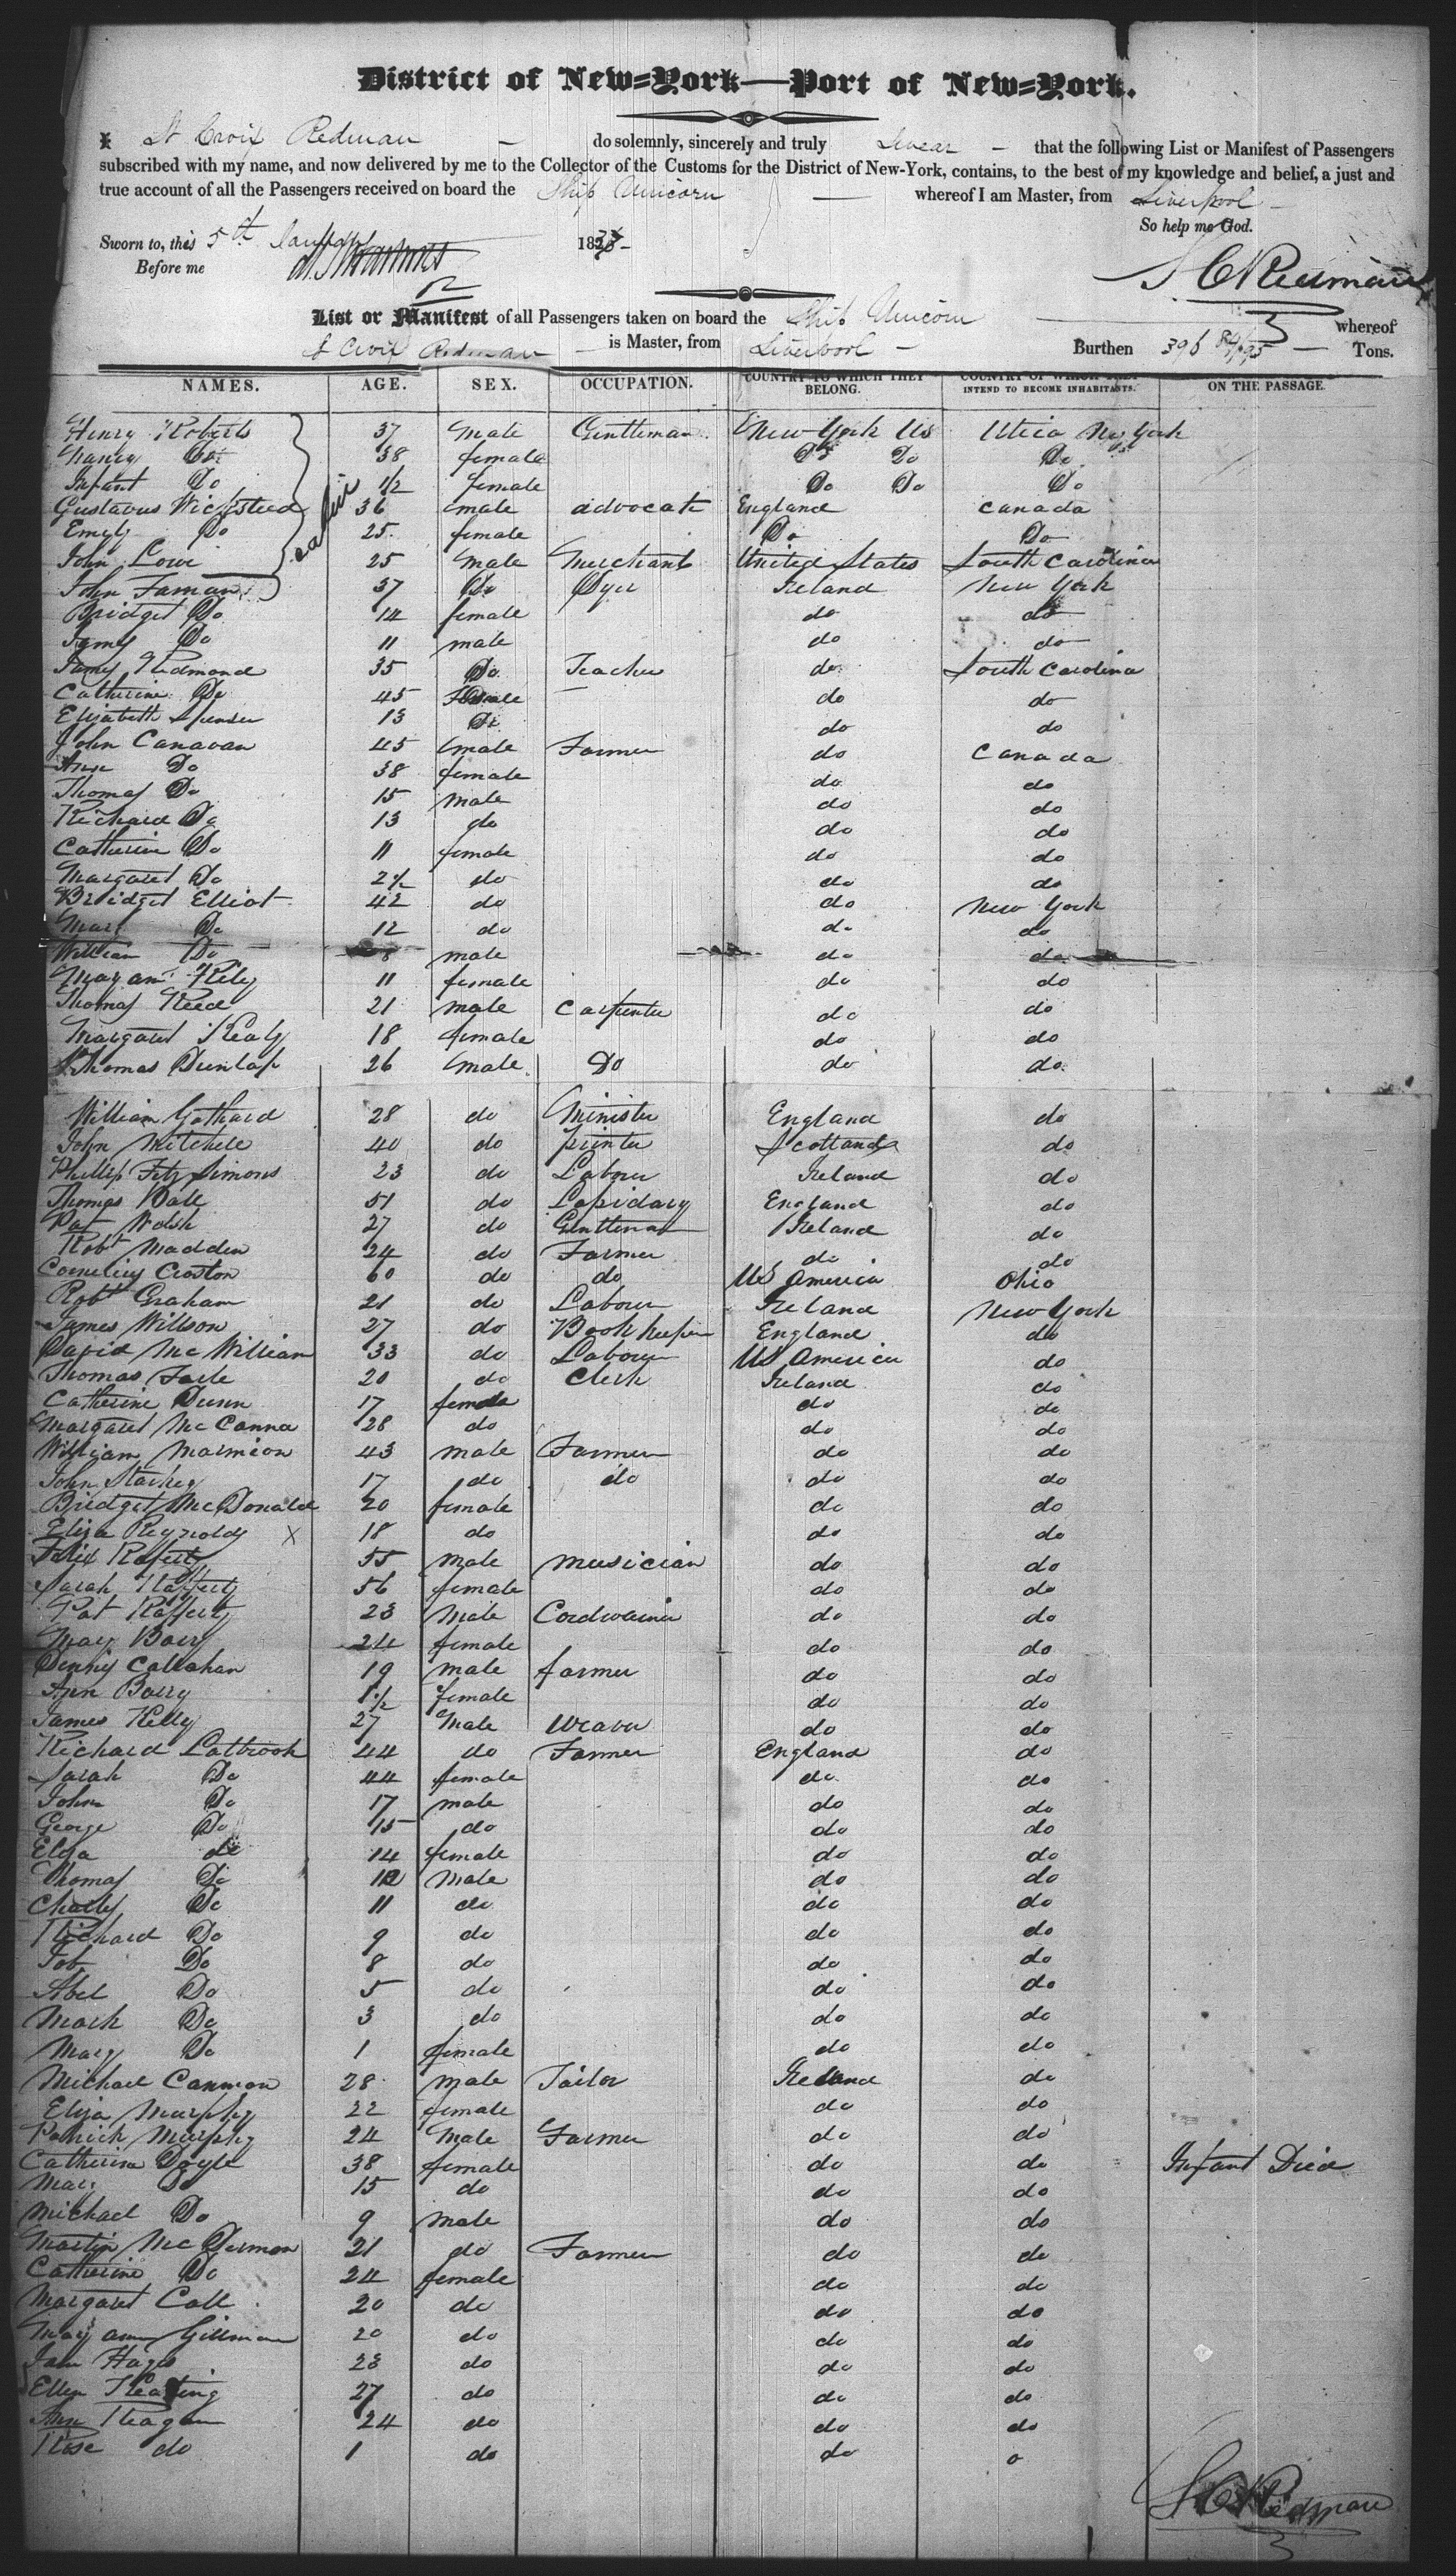 District of New=York—Port of New=York.
I St Croix Redman — do solemnly, sincerely and truly Swear — that the following List or Manifest of Passengers
subscribed with my name, and now delivered by me to the Collector of the Customs for the District of New-York, contains, to the best of my knowledge and belief, a just and
true account of all the Passengers received on board the Ship Unicorn — whereof I am Master, from Liverpool —
So help me God.
Sworn to, this 5th 18
Before me
S C Redman
List or Manifest of all Passengers taken on board the Ship Unicorn whereof
St Croix Redman is Master, from Liverpool — Burthen 396 84/95 — Tons.
NAMES. AGE. SEX. OCCUPATION. COUNTRY TO WHICH THEY BELONG. COUNTRY OF WHICH THEY INTEND TO BECOME INHABITANTS. ON THE PASSAGE.
cabin
Henry Roberts 37 Male Gentleman New York US Utica New York
Nancy Do 38 female Do Do Do
Infant Do 1/2 female Do Do Do
Gustavus Wicksteed 36 male advocate England Canada
Emily Do 25 female Do Do
John Lowe 25 Male Merchant United States South Carolina
John Farnan 37 Do Dyer Ireland New York
Bridget Do 14 female do do
James Do 11 male do do
James Redmond 35 Do Teacher do South Carolina
Catherine Do 45 Female do do
Elizabeth Spenser 13 Do do do
John Canavan 45 male Farmer do Canada
Ann Do 38 female do do
Thomas Do 15 male do do
Richard Do 13 do do do
Catherine Do 11 female do do
Margaret Do 2 1/2 do do do
Bridget Elliot 42 do do New York
Mary Do 12 do do do
William Do 8 male do do
Mary ann Riley 11 female do do
Thomas Reed 21 male Carpenter do do
Margaret Kealy 18 female do do
Thomas Dunlap 26 male Do do do
William Gothard 28 do Minister England do
John Mitchell 40 do printer Scotland do
Phillip Fitz Simons 23 do Labour Ireland do
Thomas Ball 51 do Lapidary England do
Pat Welsh 27 do Gentleman Ireland do
Robt Madden 24 do Farmer do do
Cornelius Croston 60 do do US America Ohio
Robt Graham 21 do Labour Ireland New York
James Willson 27 do Book keeper England do
David McWilliam 33 do Labour US America do
Thomas 20 do Clerk Ireland do
Catherine Dunn 17 female do do
Margaret McCanna 28 do do do
William Marmion 43 male Farmer do do
John Starkey 17 do do do do
Bridget McDonald 20 female do do
Eliza Reynolds X 18 do do do
Felix Rafferty 55 male musician do do
Sarah Rafferty 56 female do do
Pat Rafferty 23 Male Cordwainer do do
Mary Barry 24 female do do
Dennis Callahan 19 male farmer do do
Ann Barry 1 1/2 female do do
James Kelly 27 Male Weaver do do
Richard Latbrook 44 do Farmer England do
Sarah Do 44 female do do
John Do 17 male do do
George Do 15 do do do
Eliza do 14 female do do
Thomas Do 12 Male do do
Charles Do 11 do do do
Richard Do 9 do do do
Job Do 8 do do do
Abel Do 5 do do do
Mark Do 3 do do do
Mary Do 1 female do do
Michael Canmon 28 male Tailor Ireland do
Eliza Murphy 22 female do do
Patrick Murphy 24 Male Farmer do do
Catherine Doyle 38 female do do Infant Died
Mary Do 15 do do do
Michael Do 9 male do do
Martin McDermon 21 do Farmer do do
Catherine Do 24 female do do
Margaret Call 20 do do do
Mary ann Gillman 20 do do do
Jane Hayes 23 do do do
Ellen Keating 27 do do do
Ann Reagan 24 do do do
Rose do 1 do do o
S C Redman